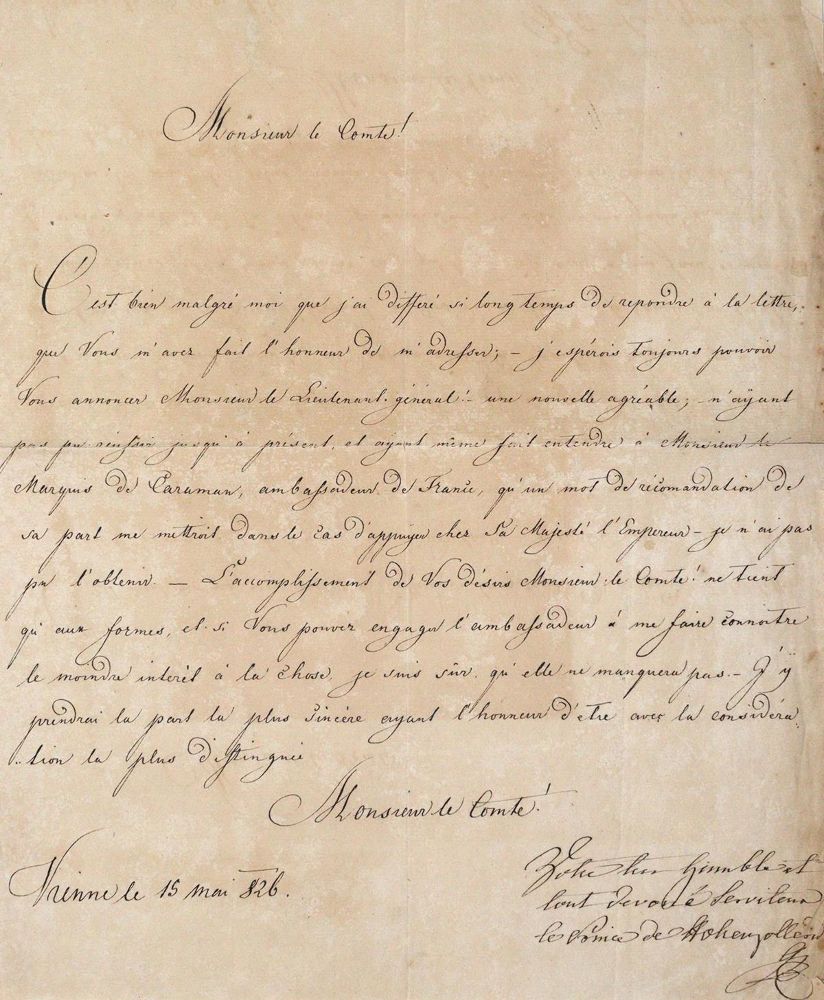 Monsieur le Comte!
C'est bien malgré moi que j'ai différé si long temps de repondre à la lettre,
que Vous m'avez fait l'honneur de m'adresser; – j'espérois toujours pouvoir
Vous annoncer Monsieur le Lieutenant-général! – une nouvelle agréable; – n'aÿant
pas pu réussir jusqu'à présent, et aÿant même fait entendre à Monsieur le
Marquis de Caraman, ambassadeur de France, qu'un mot de récomandation de
sa part me mettroit dans le cas d'appuÿer chez Sa Majesté l'Empereur – je n'ai pas
pu l'obtenir. – L'accomplissement de Vos désirs Monsieur le Comte! ne tient
qu'aux formes, et si Vous pouvez engager l'ambassadeur à me faire connoitre
le moindre interêt à la chose, je suis sûr, qu'elle ne manquera pas. – J'ÿ
prendrai la part la plus sincére aÿant l'honneur d'être avec la considéra
..tion la plus distinguée
Monsieur le Comte!
Vienne le 15 mai 826.
Votre tres humble et
tout devoué Serviteur
le Prince de Hohenzollern